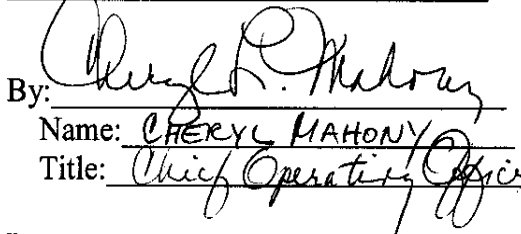 By: Cheryl L. Mahony
Name: CHERYL MAHONY
Title: Chief Operating Office